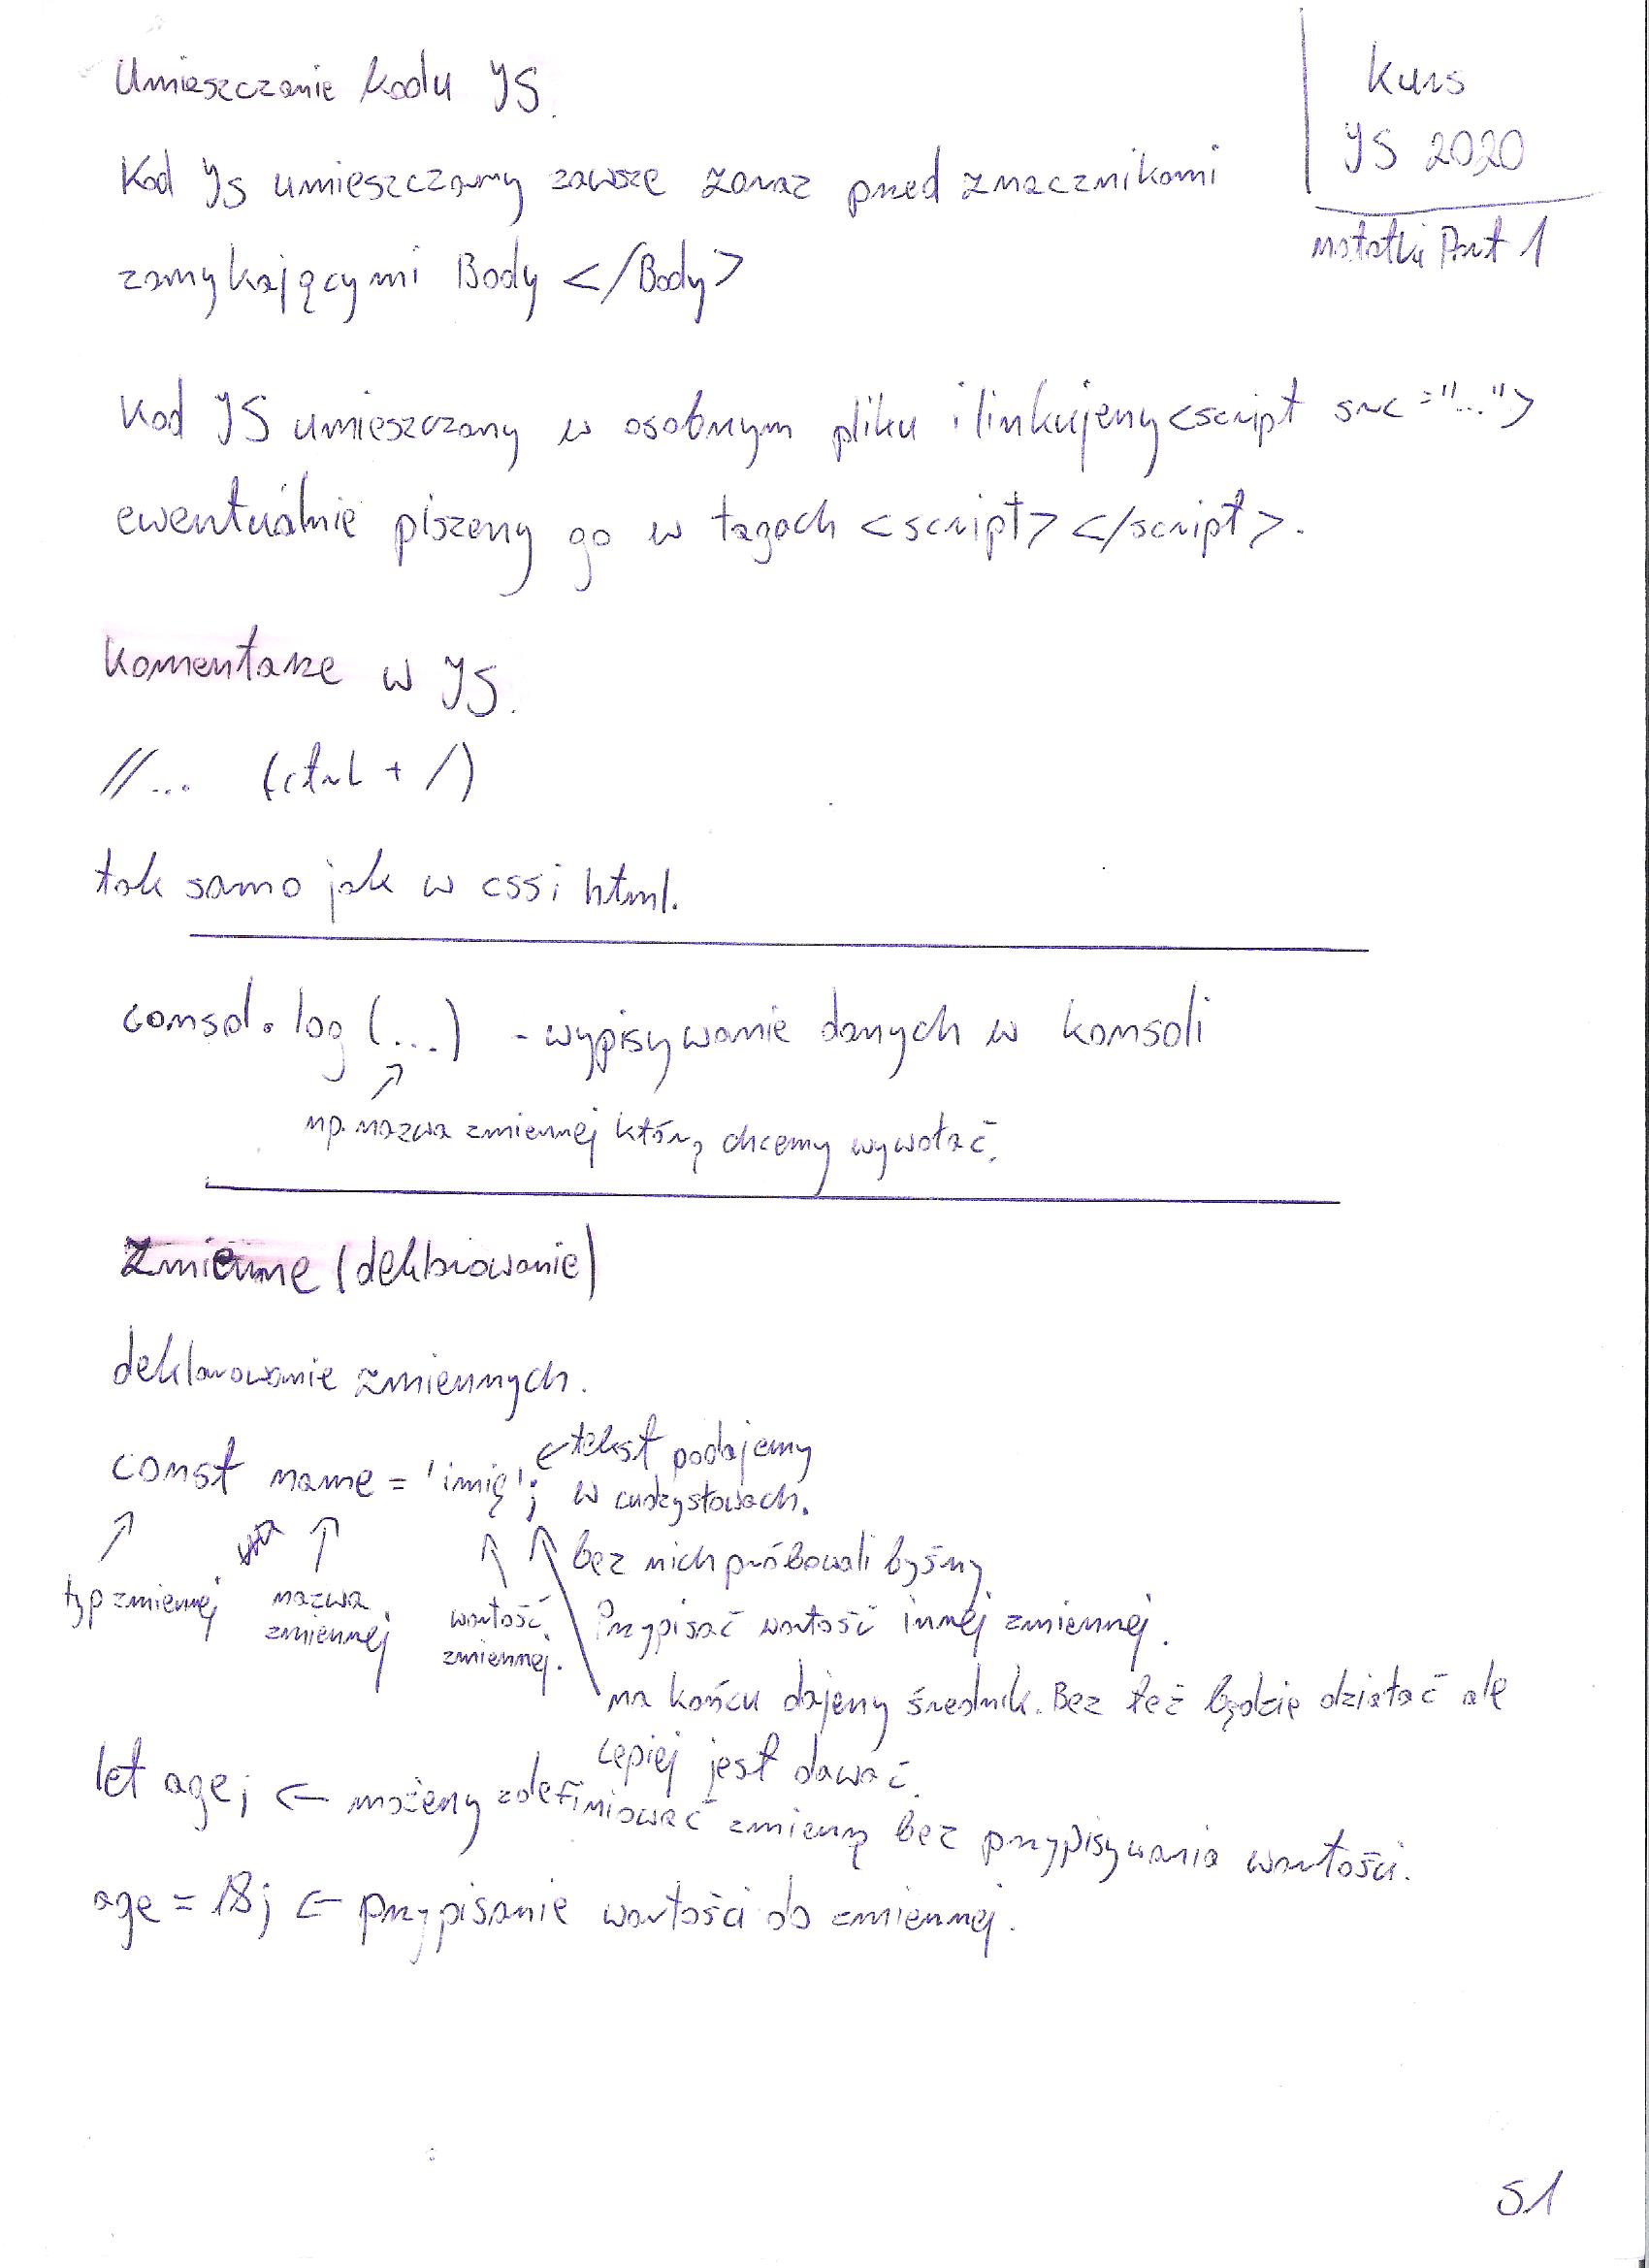 Umieszczanie kodu JS.
Kurs
JS 2020
notatki Part 1
Kod JS umieszczamy zawsze zaraz przed znacznikami
zamykającymi Body </Body>
Kod JS umieszczamy w osobnym pliku i linkujemy <script src="...">
ewentualnie piszemy go w tagach <script></script>.
Komentarze w JS.
//... (ctrl + /)
tak samo jak w css i html.
consol.log(...) - wypisywanie danych w konsoli
np. nazwa zmiennej którą chcemy wywołać.
Zmienne (deklarowanie)
deklarowanie zmiennych.
const name = 'imię'; ← tekst podajemy
w cudzysłowach.
bez nich próbowali byśmy
Przypisać wartość innej zmiennej.
typ zmiennej
nazwa
zmiennej
wartość
zmiennej.
na końcu dajemy średnik. Bez też będzie działać ale
lepiej jest dawać.
let age; ← możemy zdefiniować zmienną bez przypisywania wartości.
age = 18; ← przypisanie wartości do zmiennej.
S1